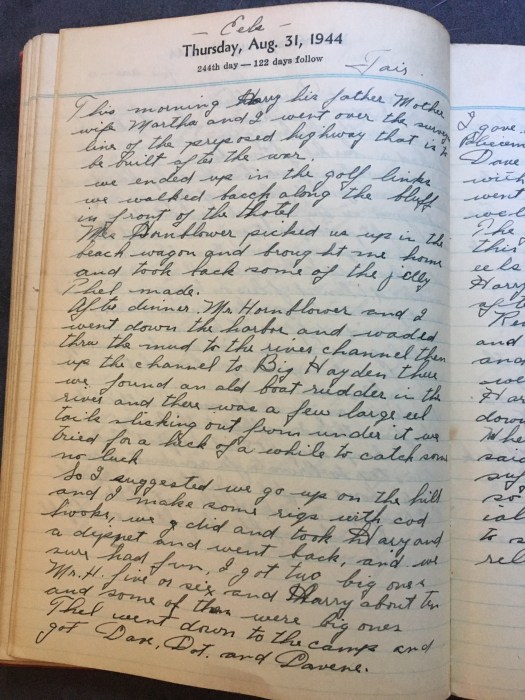 - Eels -
Thursday, Aug. 31, 1944
244th day — 122 days follow
Fair.
This morning Harry his father Mother
wife Martha and I went over the survey
line of the proposed highway that is to
be built after the war.
we ended up in the golf links
we walked back along the bluff
in front of the Hotel
Mrs Hornblower picked us up in the
beach wagon and brought me home
and took back some of the jelly
Phel made.
After dinner Mr Hornblower and I
went down the harbor and waded
thru the mud to the river channel then
up the channel to Big Hayden there
we found an old boat rudder in the
river and there was a few large eel
tails sticking out from under it we
tried for a heck of a while to catch some
no luck
So I suggested we go up on the hill
and I make some rigs with cod
hooks, we did and took Harry and
a dipnet and went back, and we
sure had fun, I got two big ones
Mr. H. five or six and Harry about ten
and some of them were big ones
Thel went down to the camp and
got Dave, Dot. and Davene.
I gave
Dave
with
went
The
this
eels
Harry
and
and
down
said
so
to s